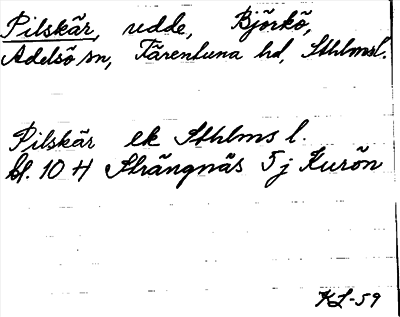 Pilskär, redde, Björkö,
Adelsö sn, Färentuna hd, Sthlmsl.
Pilskär ek Sthlms l.
bl. 10 H Strängnäs 5 j Kurön
KL-59